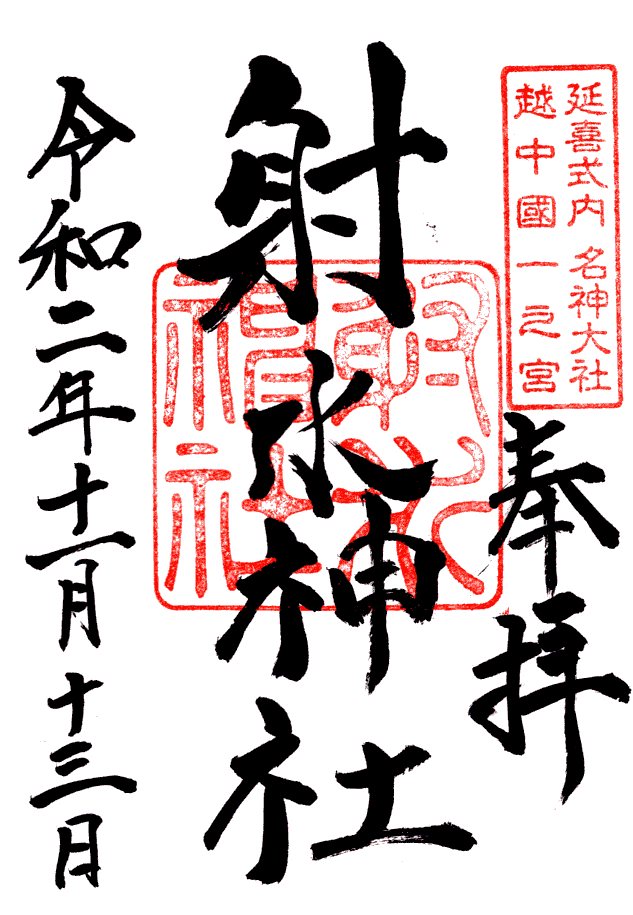 延喜式内 名神大社
越中國一之宮
奉拝
射水神社
射水神社
令和二年十一月十三日